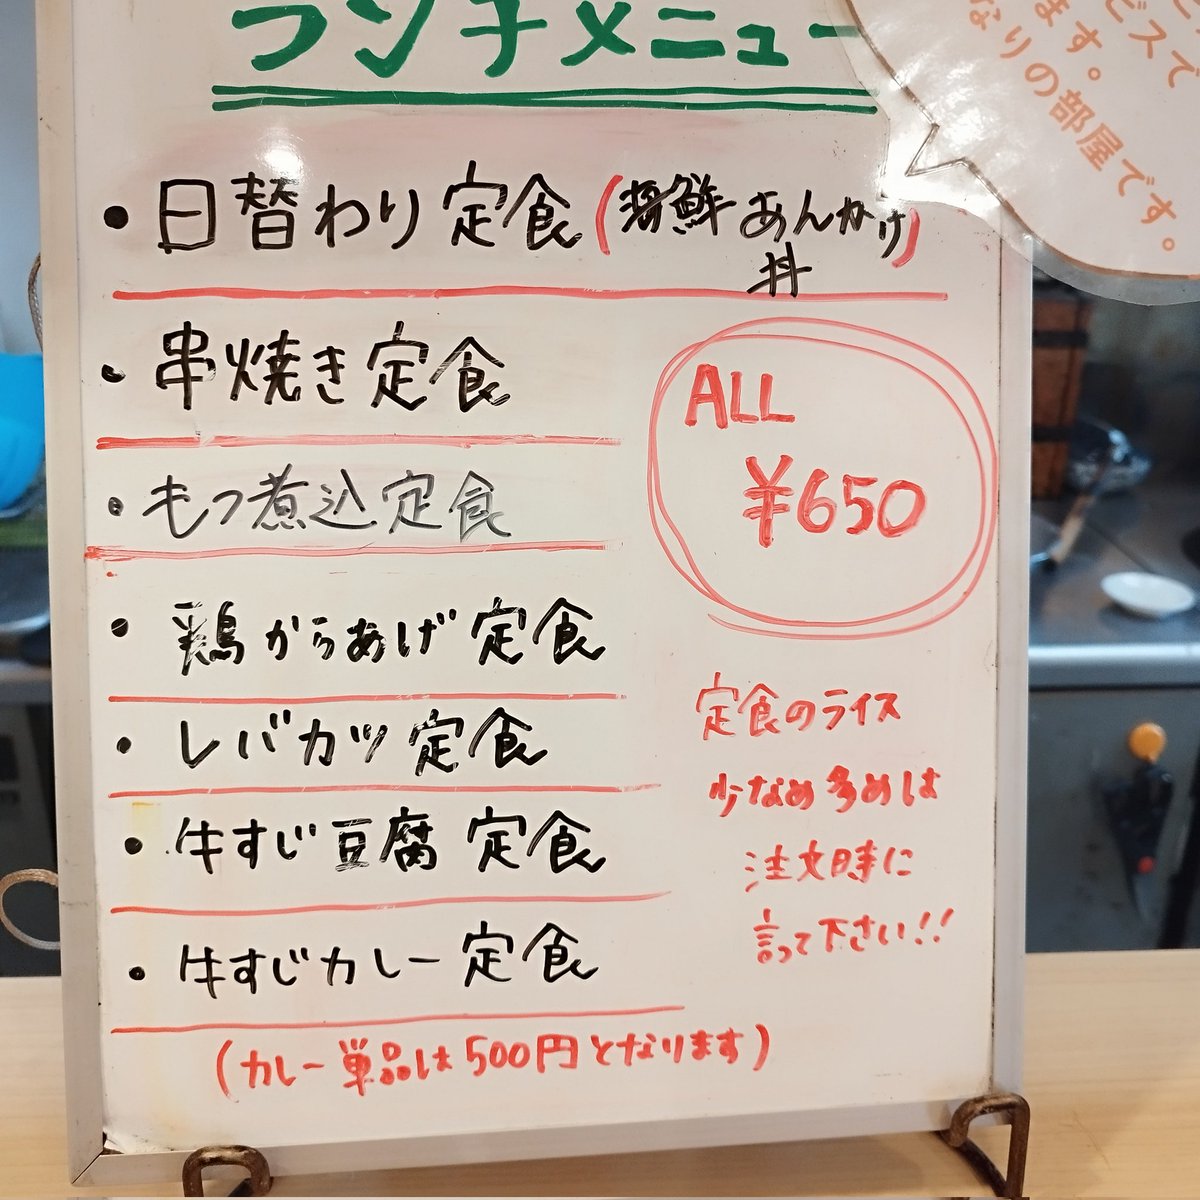 ランチメニュー
・日替わり定食(海鮮あんかけ
丼
・串焼き定食
・もつ煮込定食
・鶏からあげ定食
・レバカツ定食
・牛すじ豆腐定食
・牛すじカレー定食
(カレー単品は500円となります)
ALL
¥650
定食のライス
少なめ多めは
注文時に
言って下さい!!
ビスで
ます。
なりの部屋です。